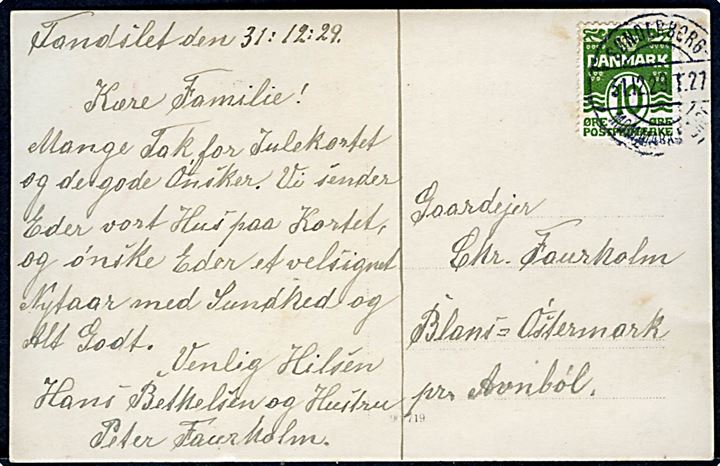 Tandslet den 31:12:29.
Kære Familie!
Mange Tak for Julekortet
og de gode Ønsker. Vi sender
Eder vort Hus paa Kortet,
og ønske Eder et velsignet
Nytaar med Sundhed og
Alt Godt.
Venlig Hilsen
Hans Bethelsen og Hustru
Peter Faurholm.
719
DANMARK
10
ØRE ØRE
POSTFRIMÆRKE
SØNDERBORG-
31.12.29 T.27
Gaardejer
Chr. Faurholm
Blans=Østermark
pr. Avnbøl.